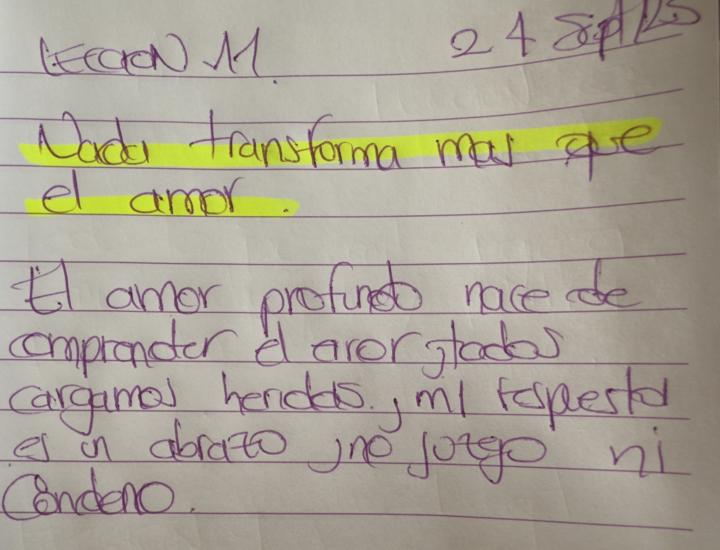 LECCION 11. 24 Sept/25
Nada transforma mas que
el amor.
El amor profundo nace de
comprender el error, todos
cargamos heridas, mi respuesta
es un abrazo, no juzgo ni
Condeno.